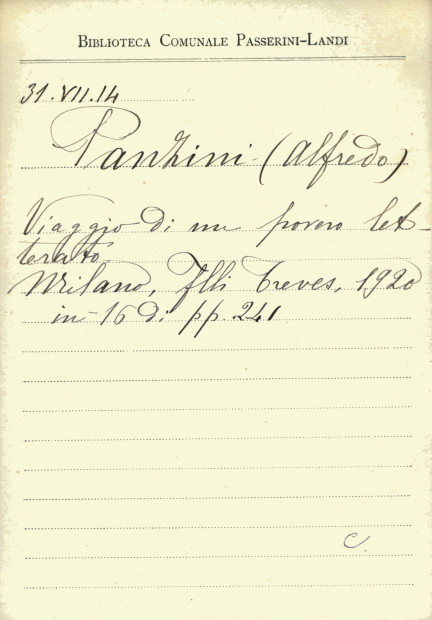 BIBLIOTECA COMUNALE PASSERINI-LANDI
31.VII.14
Panzini (Alfredo)
Viaggio di un povero let-
terato
Milano, Flli Treves, 1920
in-16 di pp. 241
C.